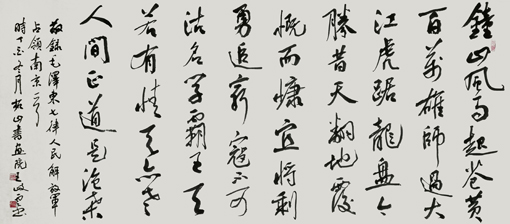 鐘山風雨起蒼黄
百萬雄師過大
江虎踞龍盤今
勝昔天翻地覆
慨而慷宜將剩
勇追窮寇不可
沽名學霸王天
若有情天亦老
人間正道是滄桑
敬錄毛澤東七律人民解放軍
占領南京一首
冬月松山書畫院王